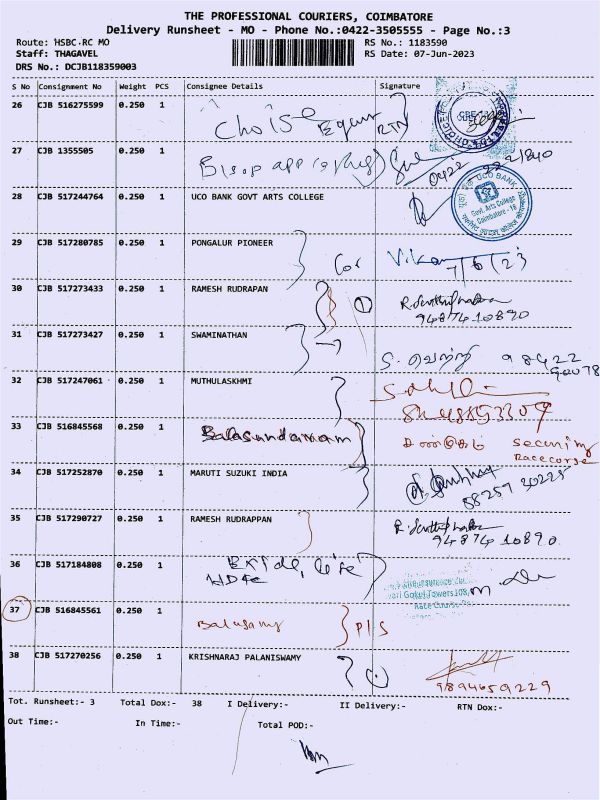 THE PROFESSIONAL COURIERS, COIMBATORE
Delivery Runsheet - MO - Phone No.:0422-3505555 - Page No.:3
Route: HSBC-RC MO
Staff: THAGAVEL
DRS No.: DCJB118359003
RS No.: 1183590
RS Date: 07-Jun-2023
S No Consignment No Weight PCS Consignee Details Signature
26 CJB 516275599 0.250 1 Choise Equan RTN
27 CJB 1355505 0.250 1
28 CJB 517244764 0.250 1 UCO BANK GOVT ARTS COLLEGE
UCO BANK
Govt. Arts College
Coimbatore - 18
29 CJB 517280785 0.250 1 PONGALUR PIONEER
7/6/23
30 CJB 517273433 0.250 1 RAMESH RUDRAPAN 1
94874 10890
31 CJB 517273427 0.250 1 SWAMINATHAN
98422
32 CJB 517247061 0.250 1 MUTHULASKHMI
33 CJB 516845568 0.250 1 Balasundaram
Racecorse
34 CJB 517252870 0.250 1 MARUTI SUZUKI INDIA
88257 30225
35 CJB 517290727 0.250 1 RAMESH RUDRAPPAN
94874 10890
36 CJB 517184808 0.250 1 Exide life
HDFC
Gokul Towers 108,
Race Course
37 CJB 516845561 0.250 1 Balusamy P/S
38 CJB 517270256 0.250 1 KRISHNARAJ PALANISWAMY
9894659229
Tot. Runsheet:- 3 Total Dox:- 38 I Delivery:- II Delivery:- RTN Dox:-
Out Time:- In Time:- Total POD:-